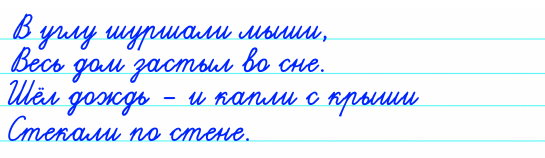 В углу шуршали мыши,
Весь дом застыл во сне.
Шёл дождь – и капли с крыши
Стекали по стене.